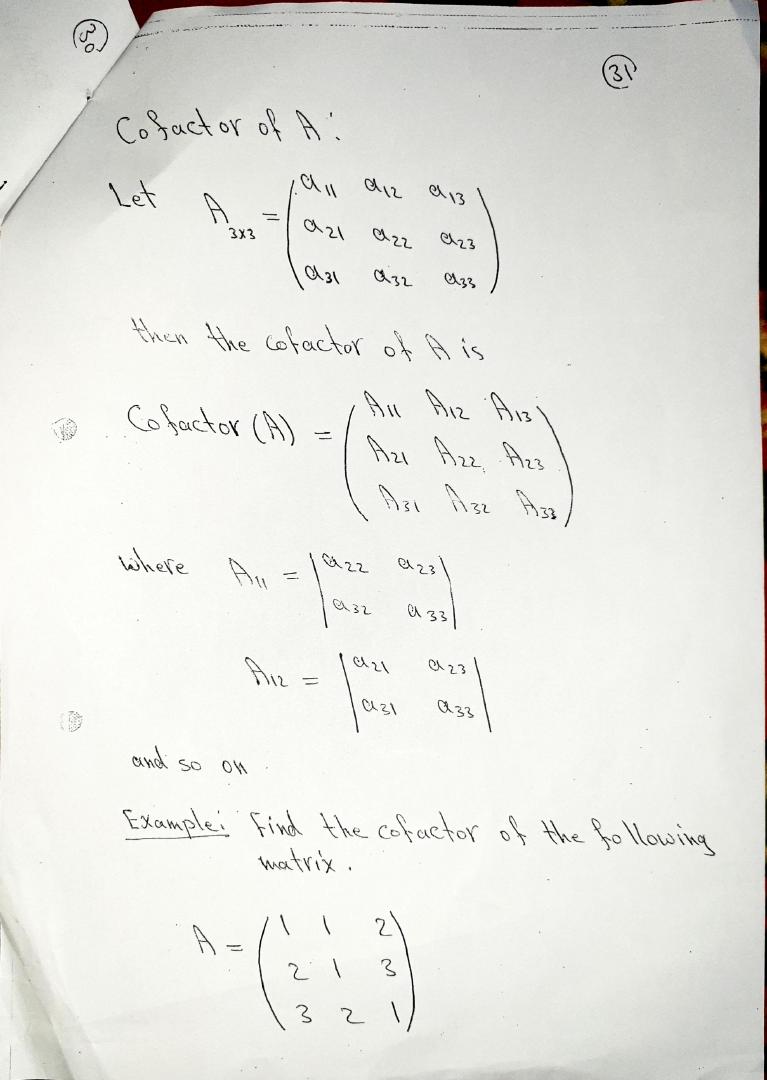 30
31
Cofactor of A:
Let A3x3 = (a11 a12 a13
a21 a22 a23
a31 a32 a33)
then the cofactor of A is
Cofactor (A) = (A11 A12 A13
A21 A22 A23
A31 A32 A33)
where A11 = |a22 a23
a32 a33|
A12 = |a21 a23
a31 a33|
and so on
Example: Find the cofactor of the following
matrix.
A = (1 1 2
2 1 3
3 2 1)